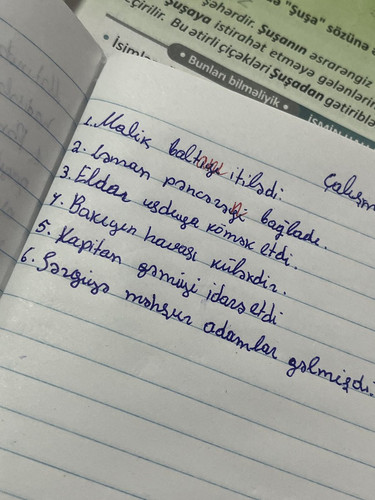 "Şuşa" sözünə
şəhərdir. Şuşanın əsrarəngiz
Şuşaya istirahət etməyə gələnlərin
keçirilir. Bu ətirli çiçəkləri Şuşadan gətiriblə
• İsimlə
• Bunları bilməliyik •
Çalışm
1. Malik baltanı itilədi.
2. Ləman pəncərəni bağladı.
3. Eldar uşduya kömək etdi.
4. Bakıyın havası küləkdir.
5. Kapitan gəmiyi idarə etdi
6. Sərgiyə məhşur adamlar gəlmişdi.